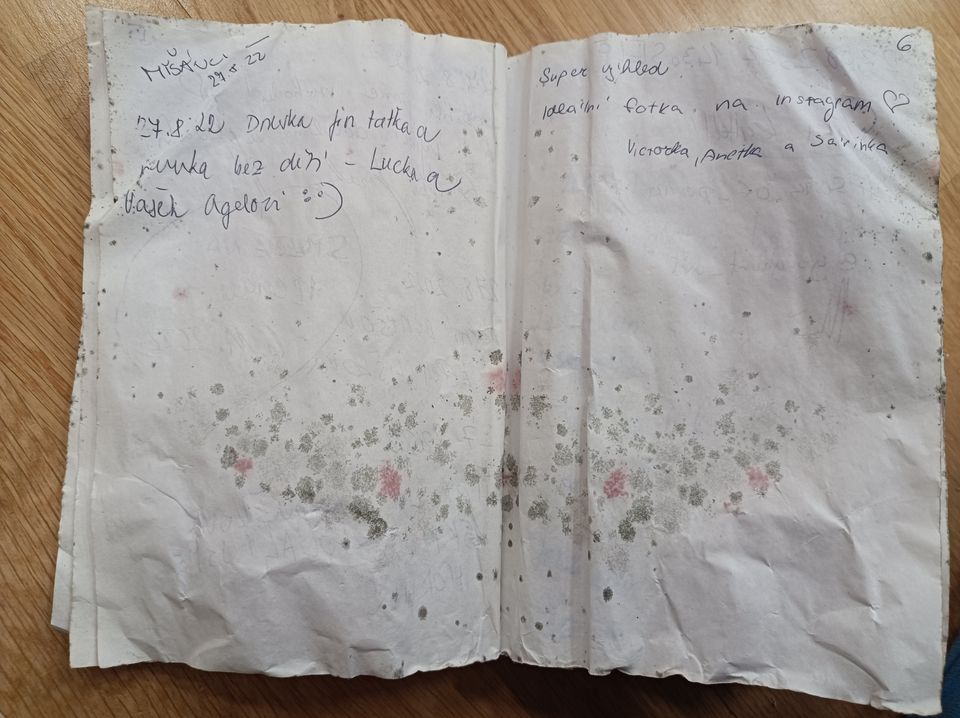 MÍŠÁNCI
27.8 22
27.8.22 Dneska jen taťka a
mamka bez dětí - Lucka a
Vašek Agelovi :)
6
Super výhled.
Ideální fotka na instagram ♡
Victorka, Anetka a Sárinka